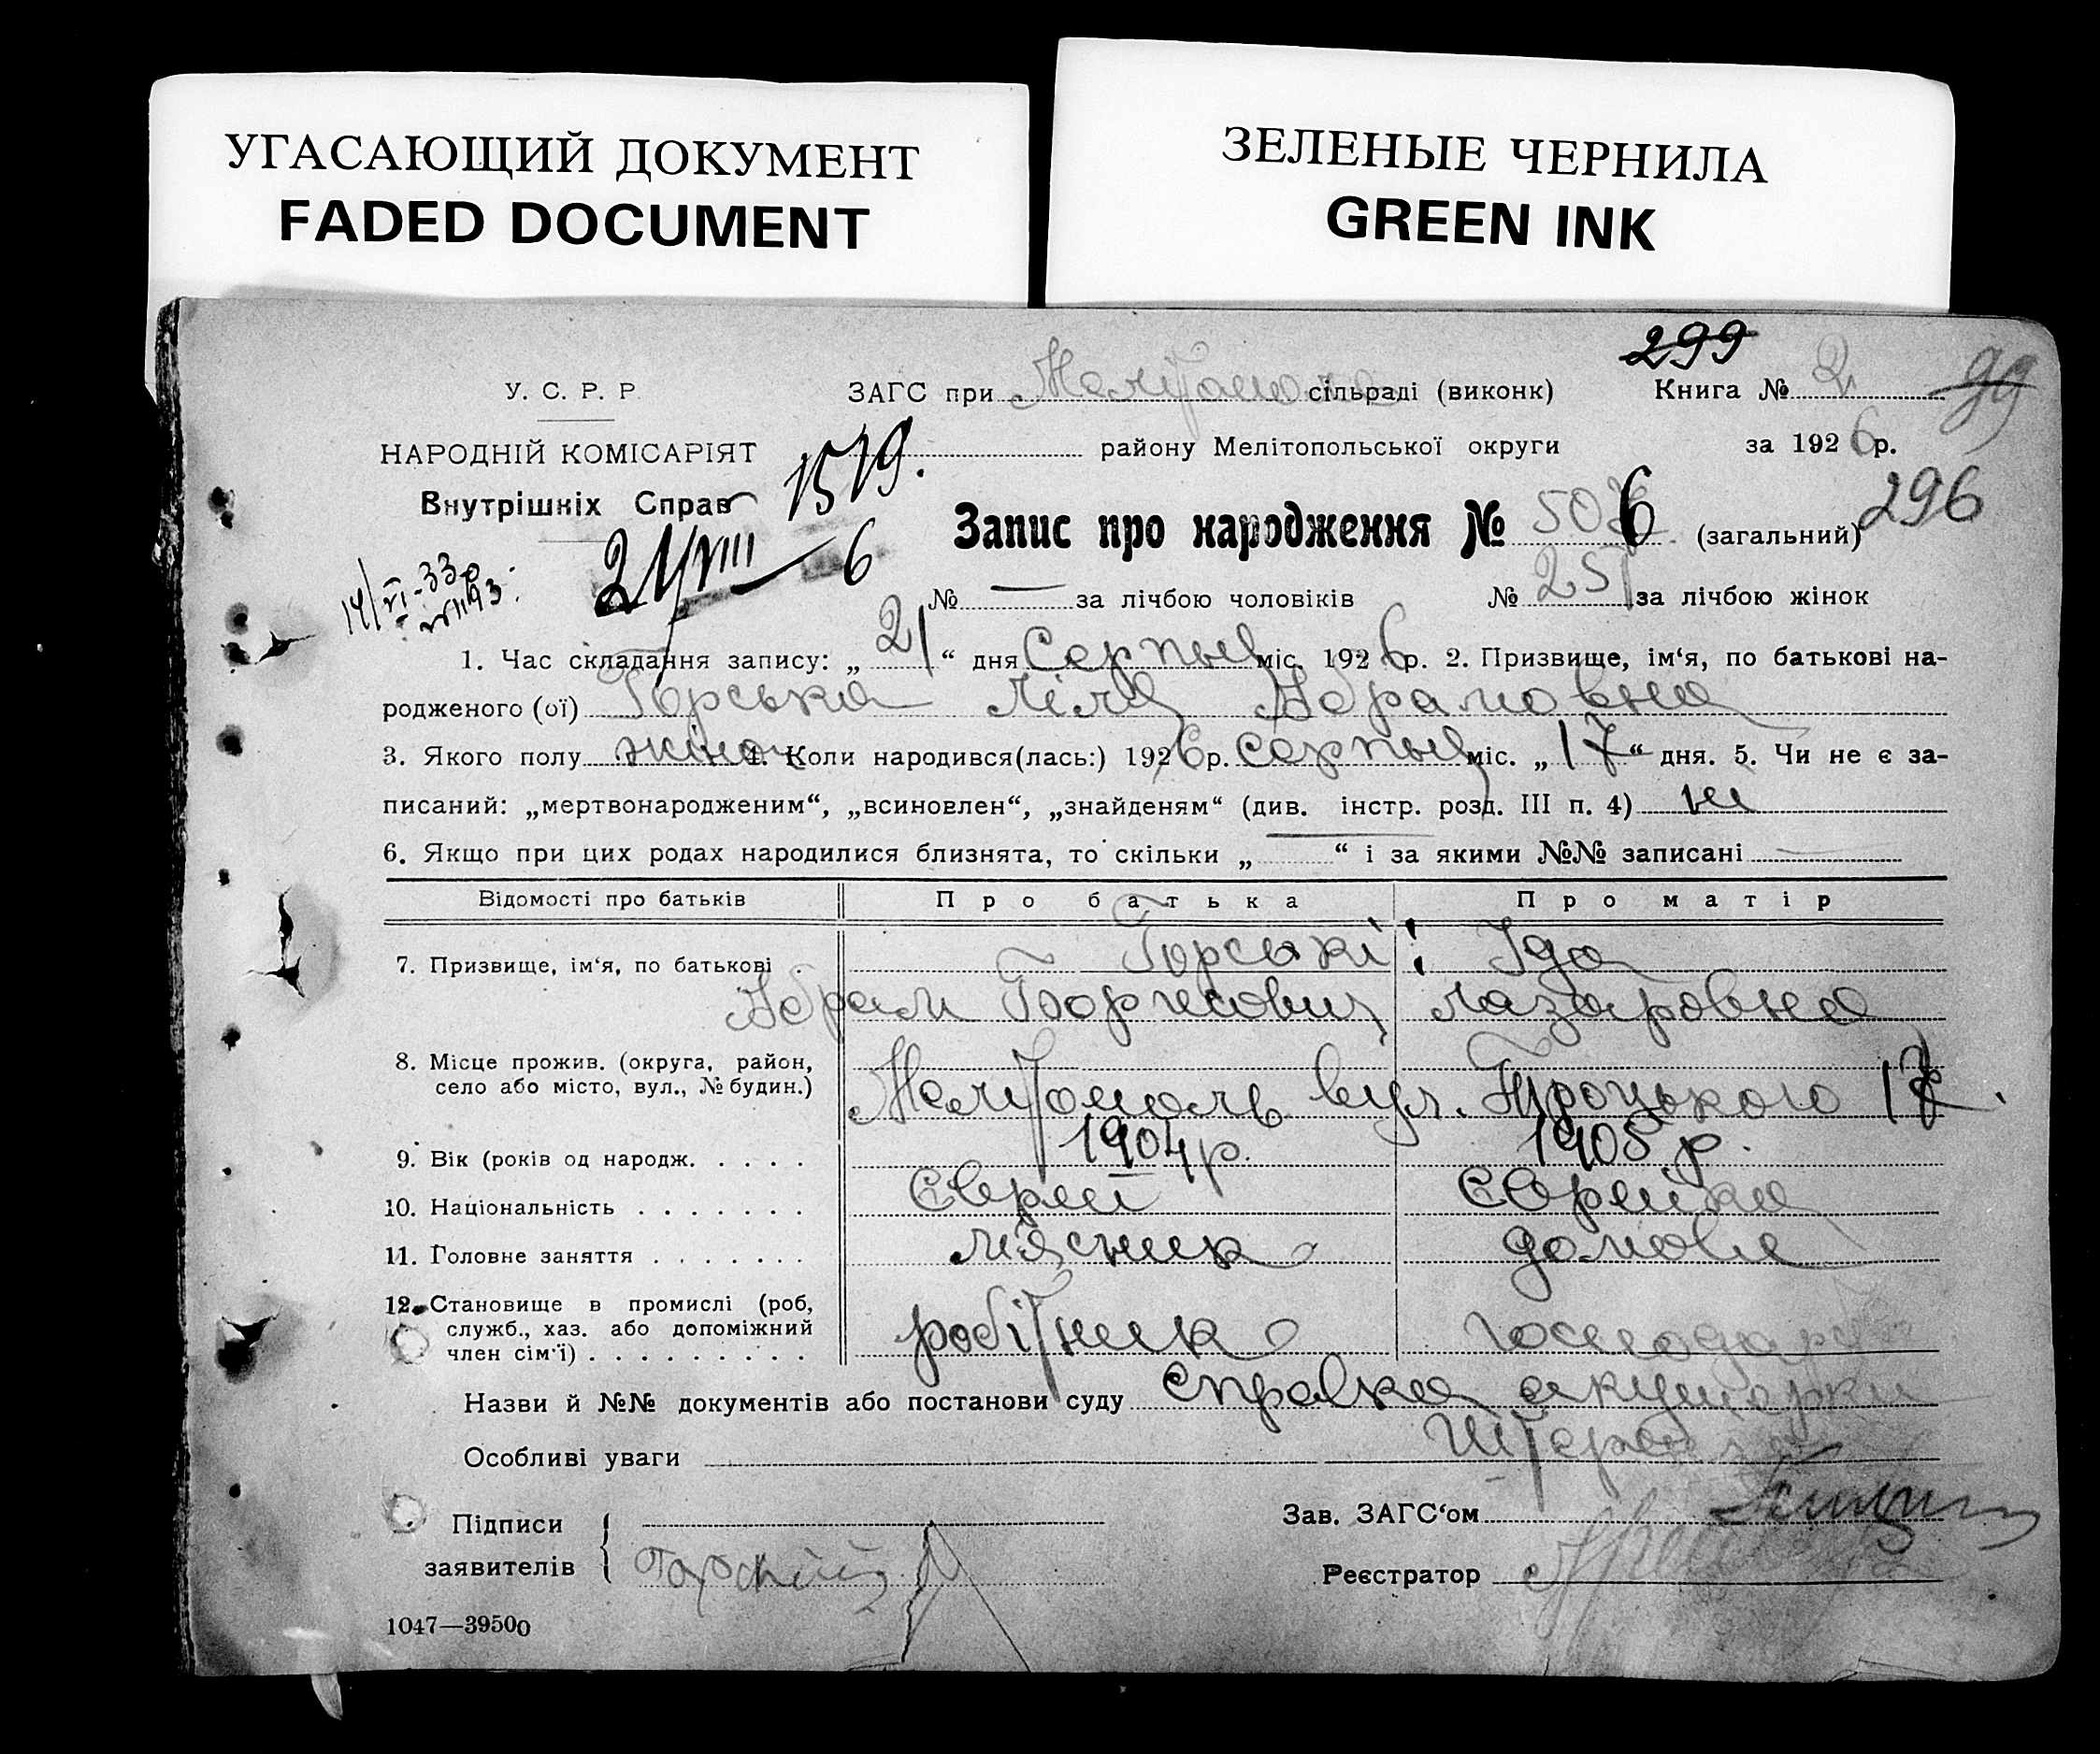 УГАСАЮЩИЙ ДОКУМЕНТ
FADED DOCUMENT
ЗЕЛЕНЫЕ ЧЕРНИЛА
GREEN INK
299
У. С. Р. Р. ЗАГС при сільраді (виконк) Книга № 2 99
НАРОДНІЙ КОМІСАРІЯТ 1519. району Мелітопольської округи за 1926 р.
Внутрішніх Справ
21/VIII—6 Запис про народження № 506 (загальний) 296
14/VI-33р. №1193. № — за лічбою чоловіків № 251 за лічбою жінок
1. Час складання запису: „21“ дня серпня міс. 1926 р. 2. Призвище, ім‘я, по батькові на-
родженого (ої) Горська Ліля Абрамовна
3. Якого полу жіноч 4. Коли народився(лась:) 1926 р. серпня міс. „17“ дня. 5. Чи не є за-
писаний: „мертвонародженим“, „всиновлен“, „знайденям“ (див. інстр. розд. III п. 4) ні
6. Якщо при цих родах народилися близнята, то скільки „—“ і за якими №№ записані —
Відомості про батьків Про батька Про матір
7. Призвище, ім‘я, по батькові . Горські: Іда
Абрам Борисович Лазаровна
8. Місце прожив. (округа, район,
село або місто, вул., № будин.) Мелітополь вул. Троцького 17.
9. Вік (років од народж. . . . . 1904 р. 1905 р.
10. Національність . . . . . . . Єврей Єврейка
11. Головне заняття . . . . . . . м'ясник домове
12. Становище в промислі (роб,
служб., хаз. або допоміжний
член сім'ї) . . . . . . . . . робітник господар
Назви й №№ документів або постанови суду справка акушерки
Особливі уваги
Підписи Зав. ЗАГС‘ом
заявителів { Горський Реєстратор
1047—39500